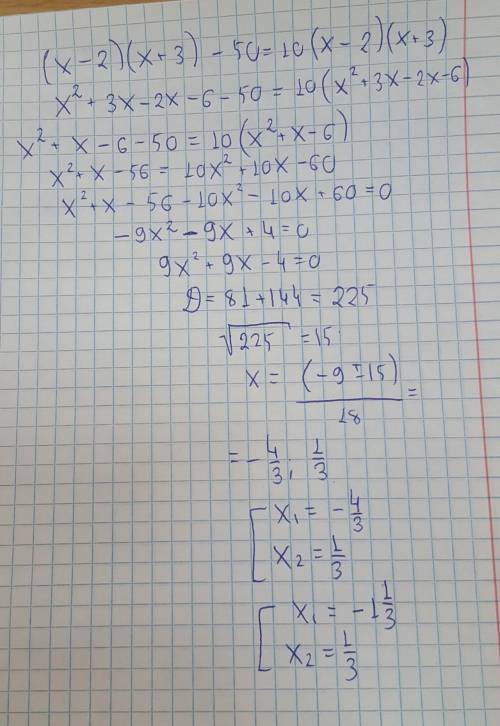 (x-2)(x+3) - 50 = 10(x-2)(x+3)
x² + 3x - 2x - 6 - 50 = 10(x² + 3x - 2x - 6)
x² + x - 6 - 50 = 10(x² + x - 6)
x² + x - 56 = 10x² + 10x - 60
x² + x - 56 - 10x² - 10x + 60 = 0
-9x² - 9x + 4 = 0
9x² + 9x - 4 = 0
D = 81 + 144 = 225
√225 = 15
x = (-9 ∓ 15)/18 =
= -4/3; 1/3
[ x₁ = -4/3
x₂ = 1/3
[ x₁ = -1 1/3
x₂ = 1/3